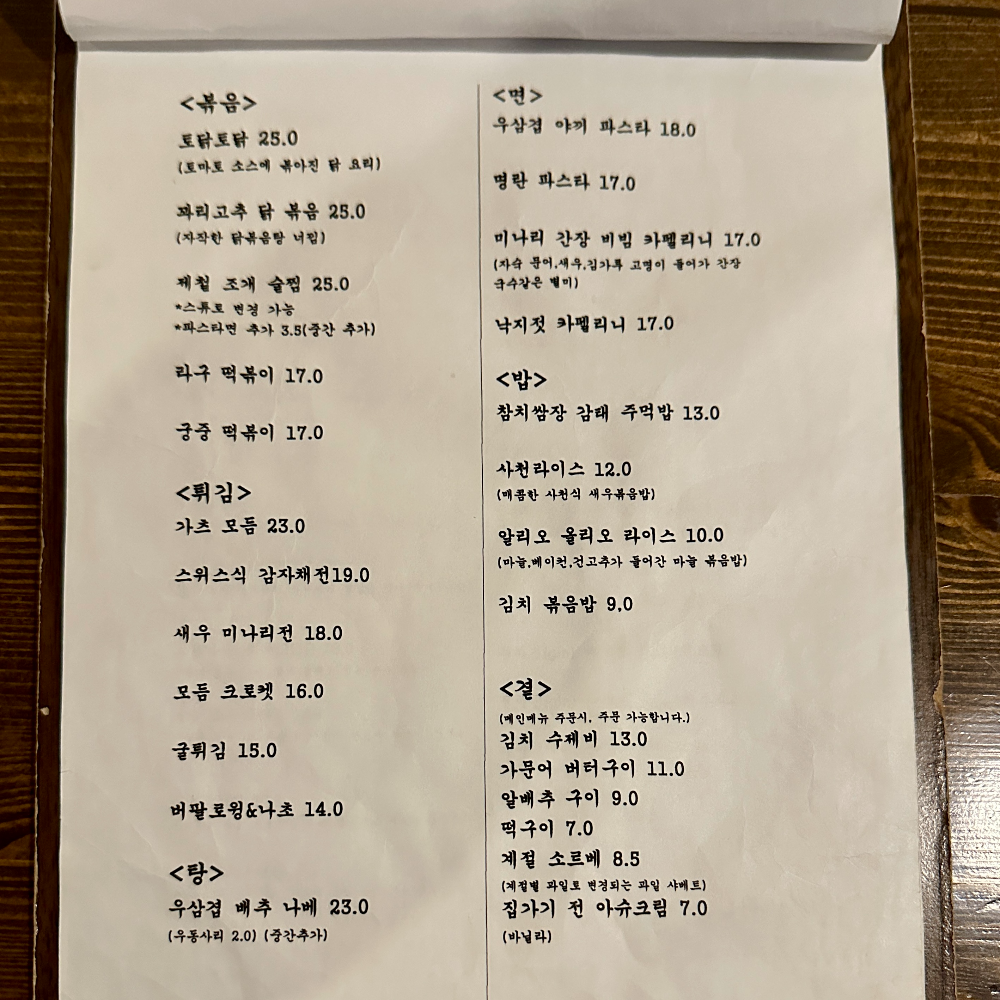 <볶음>
토닭토닭 25.0
(토마토 소스에 볶아진 닭 요리)
꽈리고추 닭 볶음 25.0
(자작한 닭볶음탕 너낌)
제철 조개 술찜 25.0
*스튜로 변경 가능
*파스타면 추가 3.5(중간 추가)
라구 떡볶이 17.0
궁중 떡볶이 17.0
<튀김>
가츠 모듬 23.0
스위스식 감자채전19.0
새우 미나리전 18.0
모듬 크로켓 16.0
굴튀김 15.0
버팔로윙&나초 14.0
<탕>
우삼겹 배추 나베 23.0
(우동사리 2.0) (중간추가)
<면>
우삼겹 야끼 파스타 18.0
명란 파스타 17.0
미나리 간장 비빔 카펠리니 17.0
(자숙 문어,새우,김가루 고명이 들어가 간장
국수같은 별미)
낙지젓 카펠리니 17.0
<밥>
참치쌈장 감태 주먹밥 13.0
사천라이스 12.0
(매콤한 사천식 새우볶음밥)
알리오 올리오 라이스 10.0
(마늘,베이컨,건고추가 들어간 마늘 볶음밥)
김치 볶음밥 9,0
<곁>
(메인메뉴 주문시, 주문 가능합니다.)
김치 수제비 13.0
가문어 버터구이 11.0
알배추 구이 9.0
떡구이 7.0
계절 소르베 8.5
(계절별 과일로 변경되는 과일 샤베트)
집가기 전 아슈크림 7.0
(바닐라)